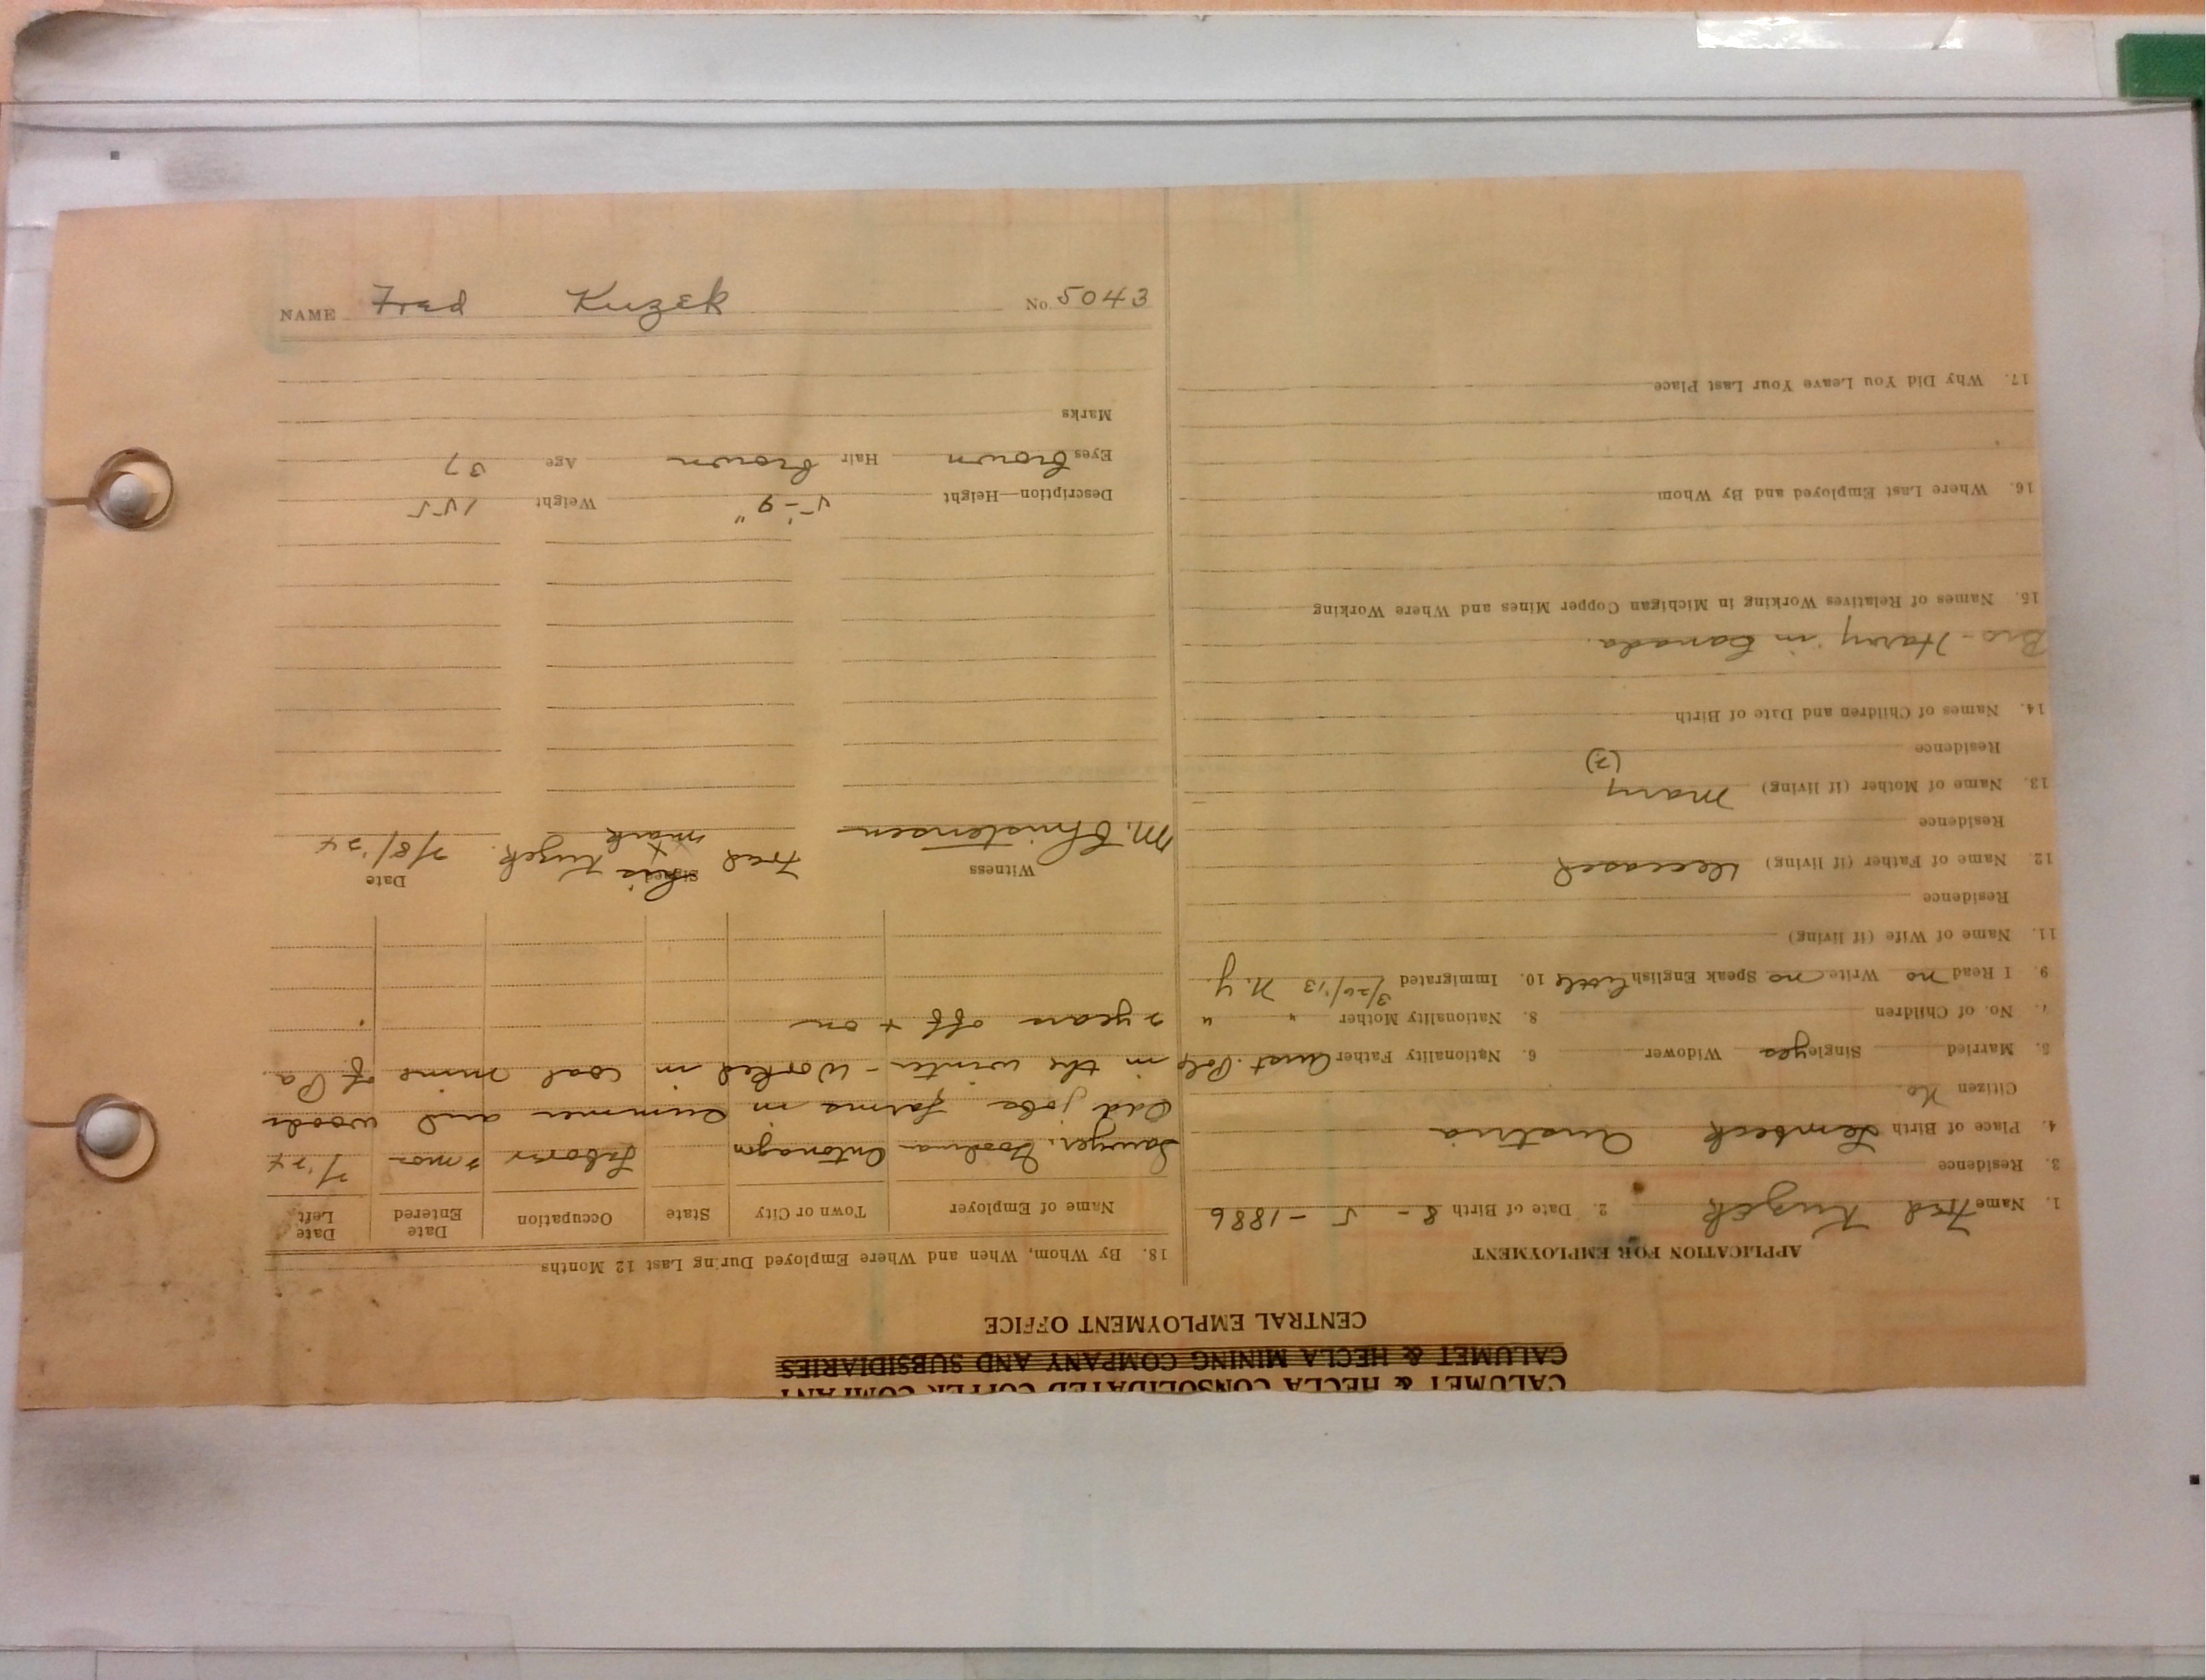 CALUMET & HECLA CONSOLIDATED COPPER COMPANY
CALUMET & HECLA MINING COMPANY AND SUBSIDIARIES
CENTRAL EMPLOYMENT OFFICE
APPLICATION FOR EMPLOYMENT
1. Name Fred Kuzek 2. Date of Birth 8 - 5 - 1886
3. Residence
4. Place of Birth Lembeck Austria
Citizen No.
5. Married Single yes Widower 6. Nationality Father Aust. Pole
7. No. of Children 8. Nationality Mother " "
9. I Read no Write no Speak English little 10. Immigrated 3/26/13 N.Y.
11. Name of Wife (if living)
Residence
12. Name of Father (if living) Deceased
Residence
13. Name of Mother (if living) Mary
Residence (?)
14. Names of Children and Date of Birth
Bro - Harry in Canada.
15. Names of Relatives Working in Michigan Copper Mines and Where Working
16. Where Last Employed and By Whom
17. Why Did You Leave Your Last Place
18. By Whom, When and Where Employed During Last 12 Months
Name of Employer Town or City State Occupation Date Entered Date Left
Sawyer, Ontonagon Laborer 2 mos 7/'24
Odd jobs farms in summer and woods
in the winter - Worked in coal mine of Pa.
2 years off + on
Witness Signed Date
M. Christensen Fred his x mark Kuzek. 7/8/'24
Description—Height 5'-9" Weight 155
Eyes brown Hair brown Age 37
Marks
NAME Fred Kuzek No. 5043